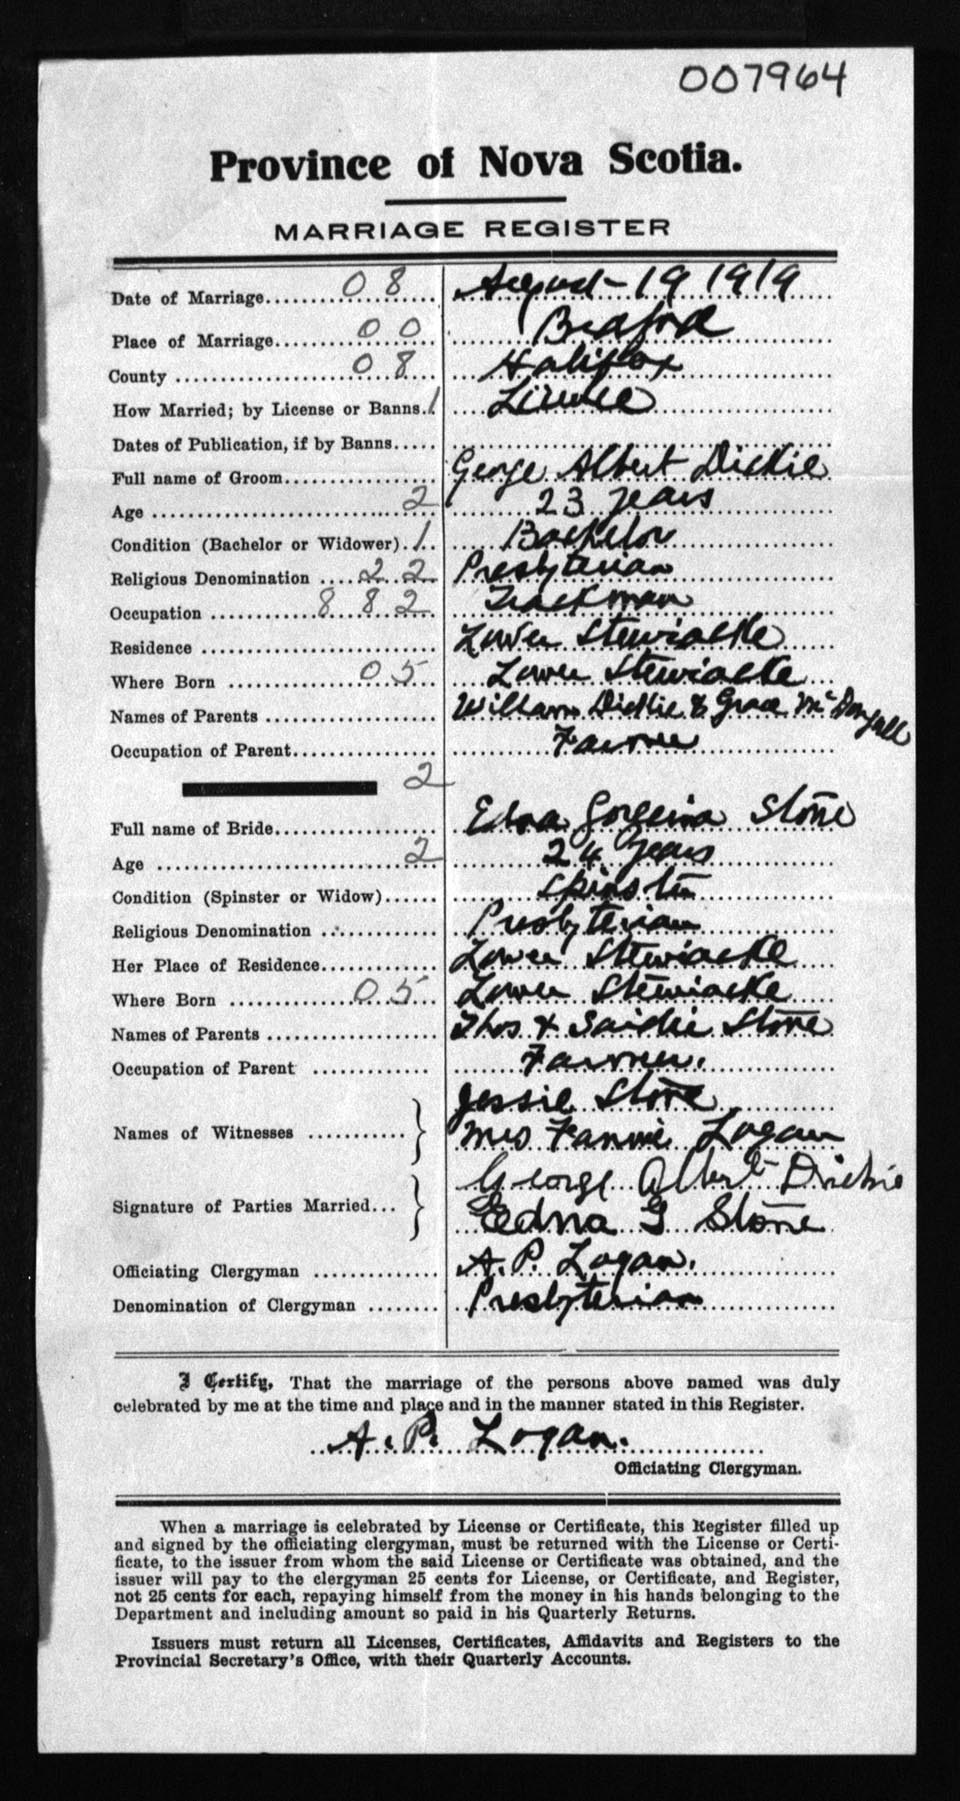 007964
Province of Nova Scotia.
MARRIAGE REGISTER
Date of Marriage 08 August 19 1919
Place of Marriage 00 Bedford
County 08 Halifax
How Married; by License or Banns 1 License
Dates of Publication, if by Banns
Full name of Groom George Albert Dickie
Age 2 23 years
Condition (Bachelor or Widower) 1 Bachelor
Religious Denomination 22 Presbyterian
Occupation 882 Trackman
Residence Lower Stewiacke
Where Born 05 Lower Stewiacke
Names of Parents William Dickie & Grace McDougall
Occupation of Parent Farmer
2
Full name of Bride Edna Stone
Age 2 24 years
Condition (Spinster or Widow) Spinster
Religious Denomination Presbyterian
Her Place of Residence Lower Stewiacke
Where Born 05 Lower Stewiacke
Names of Parents Thos & Saidie Stone
Occupation of Parent Farmer.
Jessie Stone
Names of Witnesses Mrs Fannie Logan
George Albert Dickie
Signature of Parties Married... Edna G Stone
Officiating Clergyman A. P. Logan.
Denomination of Clergyman Presbyterian
I Certify, That the marriage of the persons above named was duly
celebrated by me at the time and place and in the manner stated in this Register.
A. P. Logan.
Officiating Clergyman.
When a marriage is celebrated by License or Certificate, this Register filled up
and signed by the officiating clergyman, must be returned with the License or Certi-
ficate, to the issuer from whom the said License or Certificate was obtained, and the
issuer will pay to the clergyman 25 cents for License, or Certificate, and Register,
not 25 cents for each, repaying himself from the money in his hands belonging to the
Department and including amount so paid in his Quarterly Returns.
Issuers must return all Licenses, Certificates, Affidavits and Registers to the
Provincial Secretary's Office, with their Quarterly Accounts.